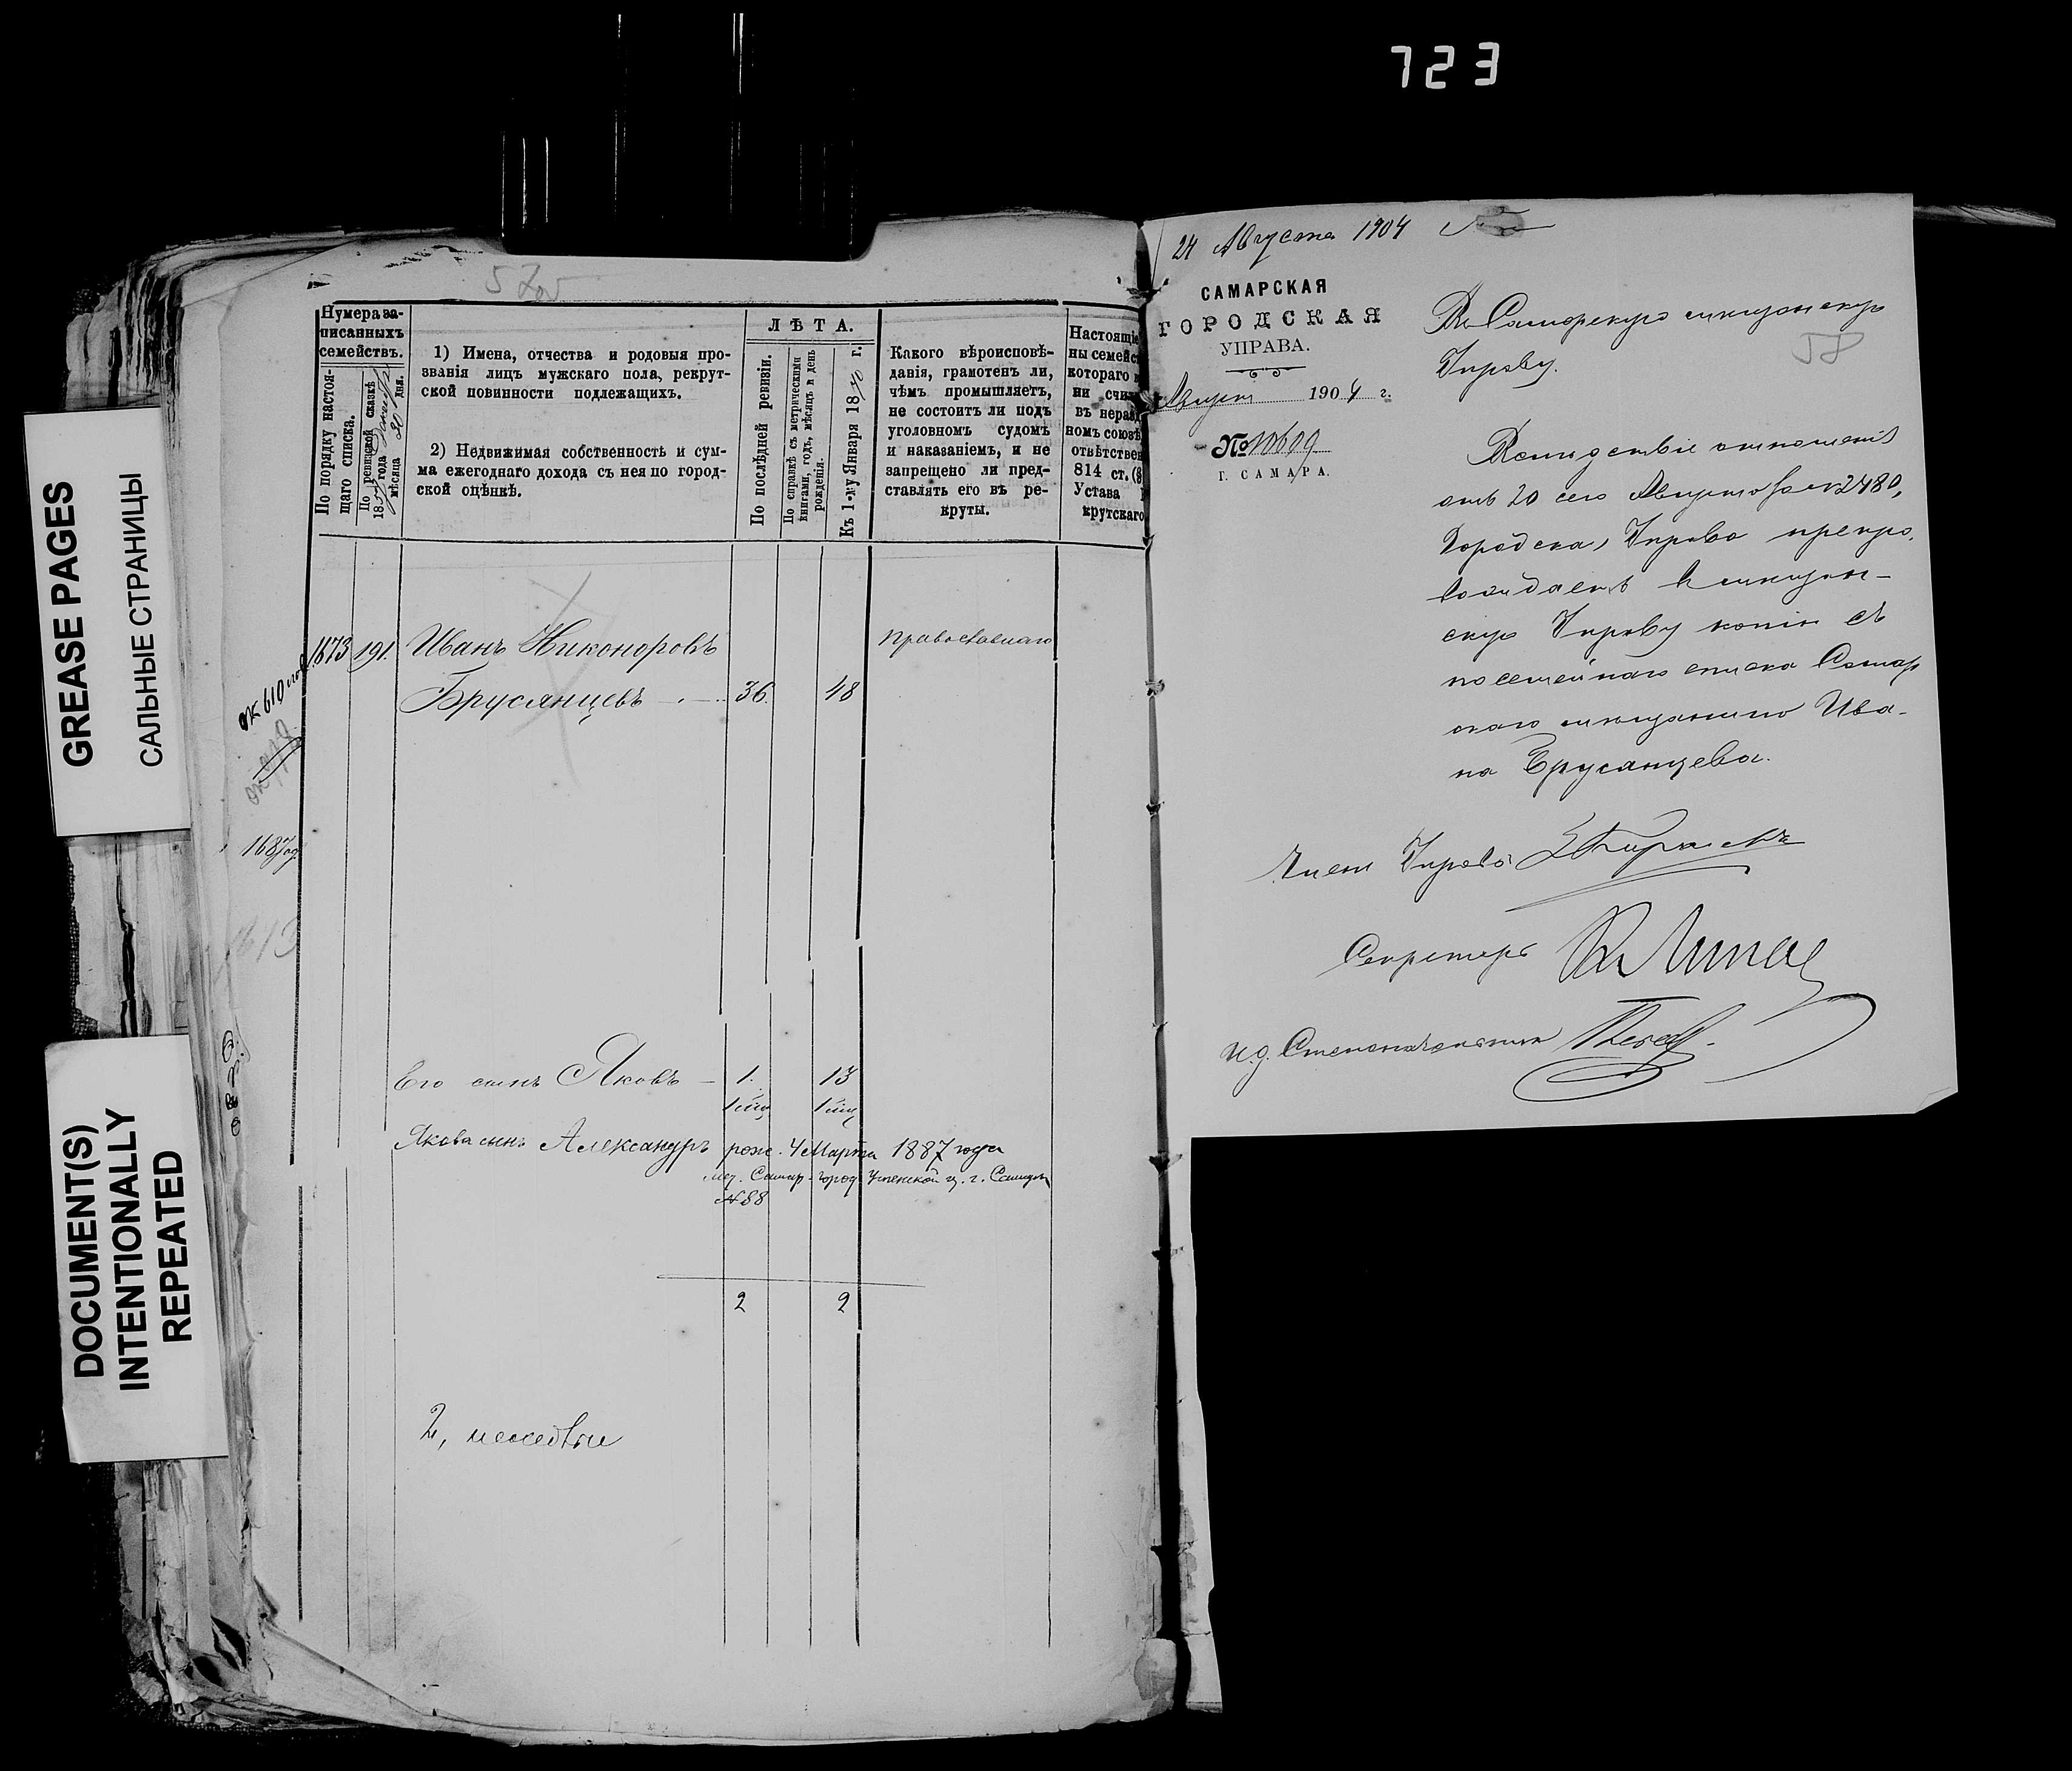 723
GREASE PAGES
САЛЬНЫЕ СТРАНИЦЫ
DOCUMENT(S)
INTENTIONALLY
REPEATED
Нумера за-
писанныхъ
семействъ.
По порядку настоя-
щаго списка.
По ревизской сказкѣ
18 года
мѣсяца 20 дня.
1) Имена, отчества и родовыя про-
званія лицъ мужскаго пола, рекрут-
ской повинности подлежащихъ.
2) Недвижимая собственность и сум-
ма ежегоднаго дохода съ нея по город-
ской оцѣнкѣ.
ЛѢТА.
По послѣдней ревизіи.
По справкѣ съ метрическими
книгами, годъ, мѣсяцъ и день
рожденія.
Къ 1-му Января 1870 г.
Какого вѣроисповѣ-
данія, грамотенъ ли,
чѣмъ промышляетъ,
не состоитъ ли подъ
уголовномъ судомъ
и наказаніемъ, и не
запрещено ли пред-
ставлять его въ ре-
круты.
Настоящіе
ны семейс
котораго
ни счи
въ нераз
номъ союзѣ
отвѣтствен
814 ст. (§
Устава
крутскаго
1873 191. Иванъ Никоноровъ Православнаго
Брусянцевъ 36. 48
ок 610
1687
1613
Его сынъ Яковъ 1. 13
Якова сынъ Александръ рожд. 4 Марта 1887 года
Самар. город. Успенской ц. г. Самары
№ 88
2 2
2,
24 Августа 1904
САМАРСКАЯ
ГОРОДСКАЯ
УПРАВА.
Августа 1904 г.
№ 10609
Г. САМАРА.
Въ Самарскую мѣщанскую
Управу.
58
Вслѣдствіе отношенія
отъ 20 сего Августа за № 2480,
Городская Управа препро-
вождаетъ въ мѣщан-
скую Управу копію съ
посемейнаго списка Самар
скаго мѣщанина Ива-
на Брусянцева.
Членъ Управы
Секретарь
И.д. Столоначальника